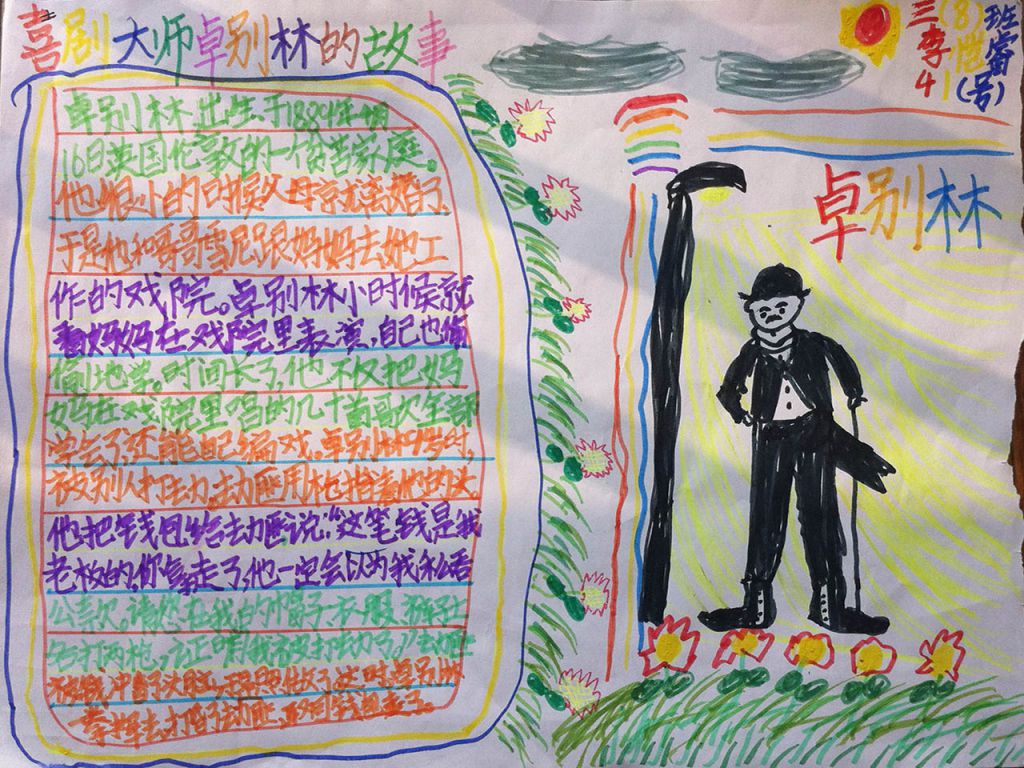 喜剧大师卓别林的故事
三(8)班
李恺睿
41(号)
卓别林
卓别林出生于1889年4月
16日英国伦敦的一个贫苦家庭。
他很小的时候父母亲就离婚了,
于是他和哥哥雪尼跟妈妈去她工
作的戏院。卓别林小时候就
看妈妈在戏院里表演,自己也偷
偷地学。时间长了,他不仅把妈
妈在戏院里唱的几十首歌全部
学会了,还能自己编戏。卓别林
被别人打劫,劫匪用枪指着他的头,
他把钱包给劫匪说:“这笔钱是我
老板的,你拿走了,他一定会以为我私吞
公款,请您在我的帽子
打两枪,证明我被打劫了。”劫匪
卓别林
拿